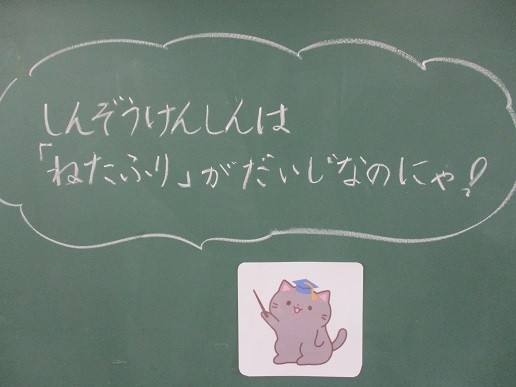 しんぞうけんしんは
「ねたふり」がだいじなのにゃ！